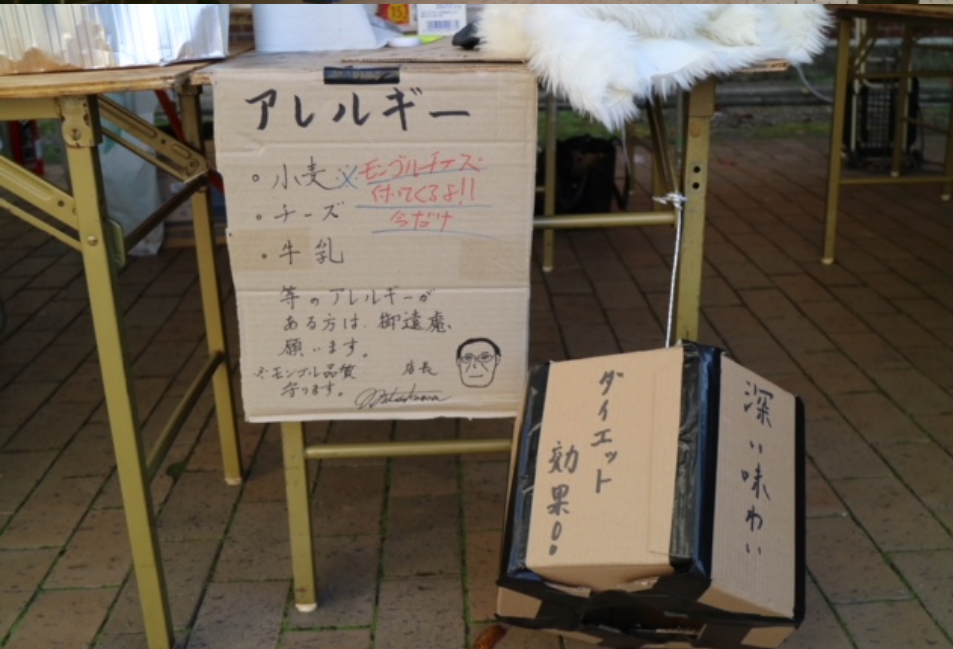 アレルギー
・小麦 ※モンゴルチーズ
付いてくるよ!!
・チーズ
今だけ
・牛乳
等のアレルギーが
ある方は、御遠慮、
願います。
※モンゴル品質
守ります。
店長
ダイエット
効果!
深い味わい